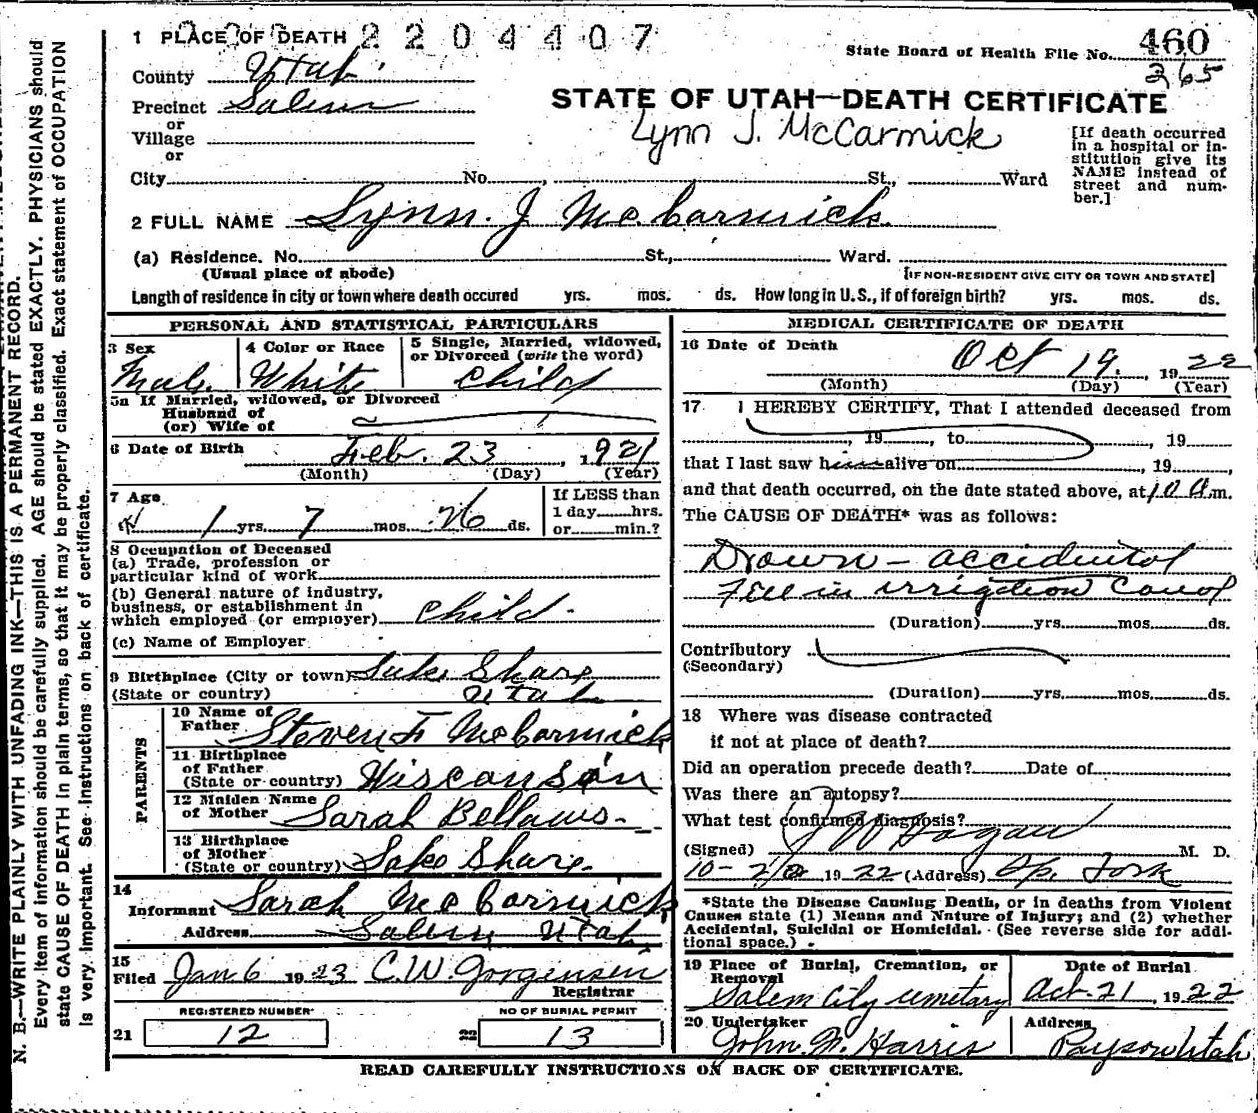 1 PLACE OF DEATH 2204407
State Board of Health File No. 460
265
County Utah
Precinct Salem
or
Village
or
City No. St., Ward
STATE OF UTAH—DEATH CERTIFICATE
Lynn J. McCarmick
[If death occurred in a hospital or institution give its NAME instead of street and number.]
2 FULL NAME Lynn. J McCarmick.
(a) Residence. No. St., Ward.
(Usual place of abode) [IF NON-RESIDENT GIVE CITY OR TOWN AND STATE]
Length of residence in city or town where death occured yrs. mos. ds. How long in U.S., if of foreign birth? yrs. mos. ds.
PERSONAL AND STATISTICAL PARTICULARS
3 Sex
Male
4 Color or Race
White
5 Single, Married, widowed,
or Divorced (write the word)
Child
5a If Married, widowed, or Divorced
Husband of
(or) Wife of
6 Date of Birth Feb. 23, 1921
(Month) (Day) (Year)
7 Age
1 yrs. 7 mos. 26 ds.
If LESS than
1 day hrs.
or min.?
8 Occupation of Deceased
(a) Trade, profession or
particular kind of work
(b) General nature of industry,
business, or establishment in
which employed (or employer) Child.
(c) Name of Employer
9 Birthplace (City or town) Lake Shore
(State or country) Utah
PARENTS
10 Name of
Father Steven F McCarmick
11 Birthplace
of Father
(State or country) Wisconsin
12 Maiden Name
of Mother Sarah Bellows
13 Birthplace
of Mother
(State or country) Lake Shore.
14
Informant Sarah McCarmick
Address Salem Utah
15
Filed Jan 6 1923 C.W. Jorgensen
Registrar
REGISTERED NUMBER
21 12
NO OF BURIAL PERMIT
22 13
MEDICAL CERTIFICATE OF DEATH
16 Date of Death
Oct 19. 1922
(Month) (Day) (Year)
17 I HEREBY CERTIFY, That I attended deceased from
, 19 , to , 19
that I last saw him alive on , 19 ,
and that death occurred, on the date stated above, at 10 a.m.
The CAUSE OF DEATH* was as follows:
Drown - accidental
Fell in irrigation Canal
(Duration) yrs. mos. ds.
Contributory
(Secondary)
(Duration) yrs. mos. ds.
18 Where was disease contracted
if not at place of death?
Did an operation precede death? Date of
Was there an autopsy?
What test confirmed diagnosis?
(Signed) J W Hagan M. D.
10-20 1922 (Address) Sp. Fork
*State the Disease Causing Death, or in deaths from Violent
Causes state (1) Means and Nature of Injury; and (2) whether
Accidental, Suicidal or Homicidal. (See reverse side for addi-
tional space.)
19 Place of Burial, Cremation, or
Removal
Salem City cemetary
Date of Burial
Oct. 21, 1922
20 Undertaker
John M. Harris
Address
Payson Utah
READ CAREFULLY INSTRUCTIONS ON BACK OF CERTIFICATE.
N. B.—WRITE PLAINLY WITH UNFADING INK—THIS IS A PERMANENT RECORD.
Every item of information should be carefully supplied. AGE should be stated EXACTLY. PHYSICIANS should
state CAUSE OF DEATH in plain terms, so that it may be properly classified. Exact statement of OCCUPATION
is very important. See instructions on back of certificate.